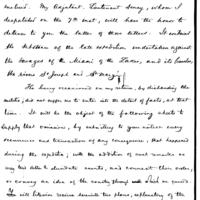 ment. My Adjutant, Lieutenant Denny, whom I
despatched on the 7th inst, will have the honor to
deliver to you the latter of those letters. It contained
the relation of the late expedition undertaken against
the Savages of the Miami of the Lakes, and its branches
the rivers St Joseph and St Mary's.
The hurry occasioned on my return, by disbanding the
militia, did not suffer me to enter into the detail of facts, at that
time. It will be the object of the following sheets to
supply that omission, by submitting to your notice every
occurrence and transaction of any consequence, that happened
during the expedition, with the addition of such remarks as
may tend to elucidate events, and connect their order,
or convey an idea of the country through which we passed.
You will likewise receive herewith two plans, explanatory of the